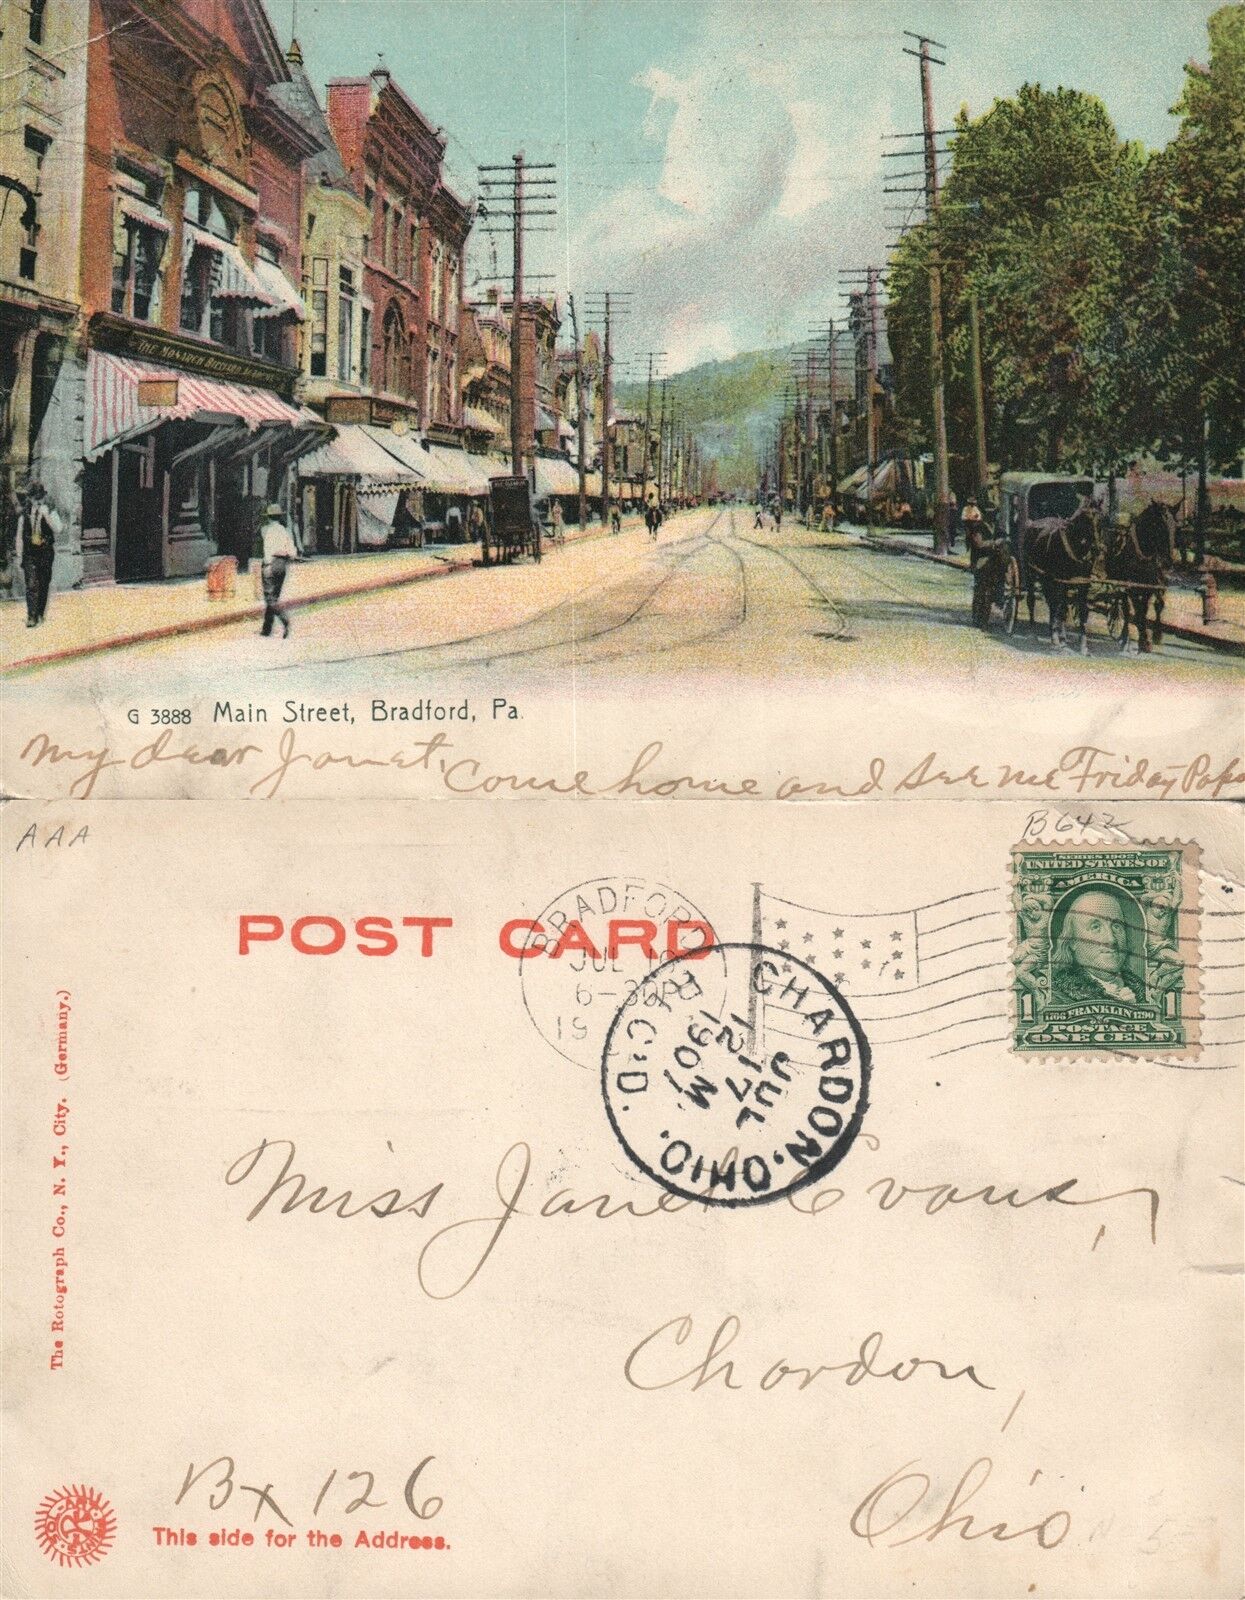 THE MONARCH
G 3888 Main Street, Bradford, Pa.
My dear Janet, Come home and see me Friday Papa
AAA
B642
POST CARD
BRADFORD
JUL 16
6-30P
19
CHARDON, OHIO.
REC'D.
JUL
17
12 M
1907
SERIES 1902
UNITED STATES OF
AMERICA
1 1
1706 FRANKLIN 1790
POSTAGE
ONE CENT
The Rotograph Co., N. Y., City. (Germany.)
Miss Janet Evans,
Chardon,
Ohio
Bx 126
SOL-ART PRINTS
This side for the Address.